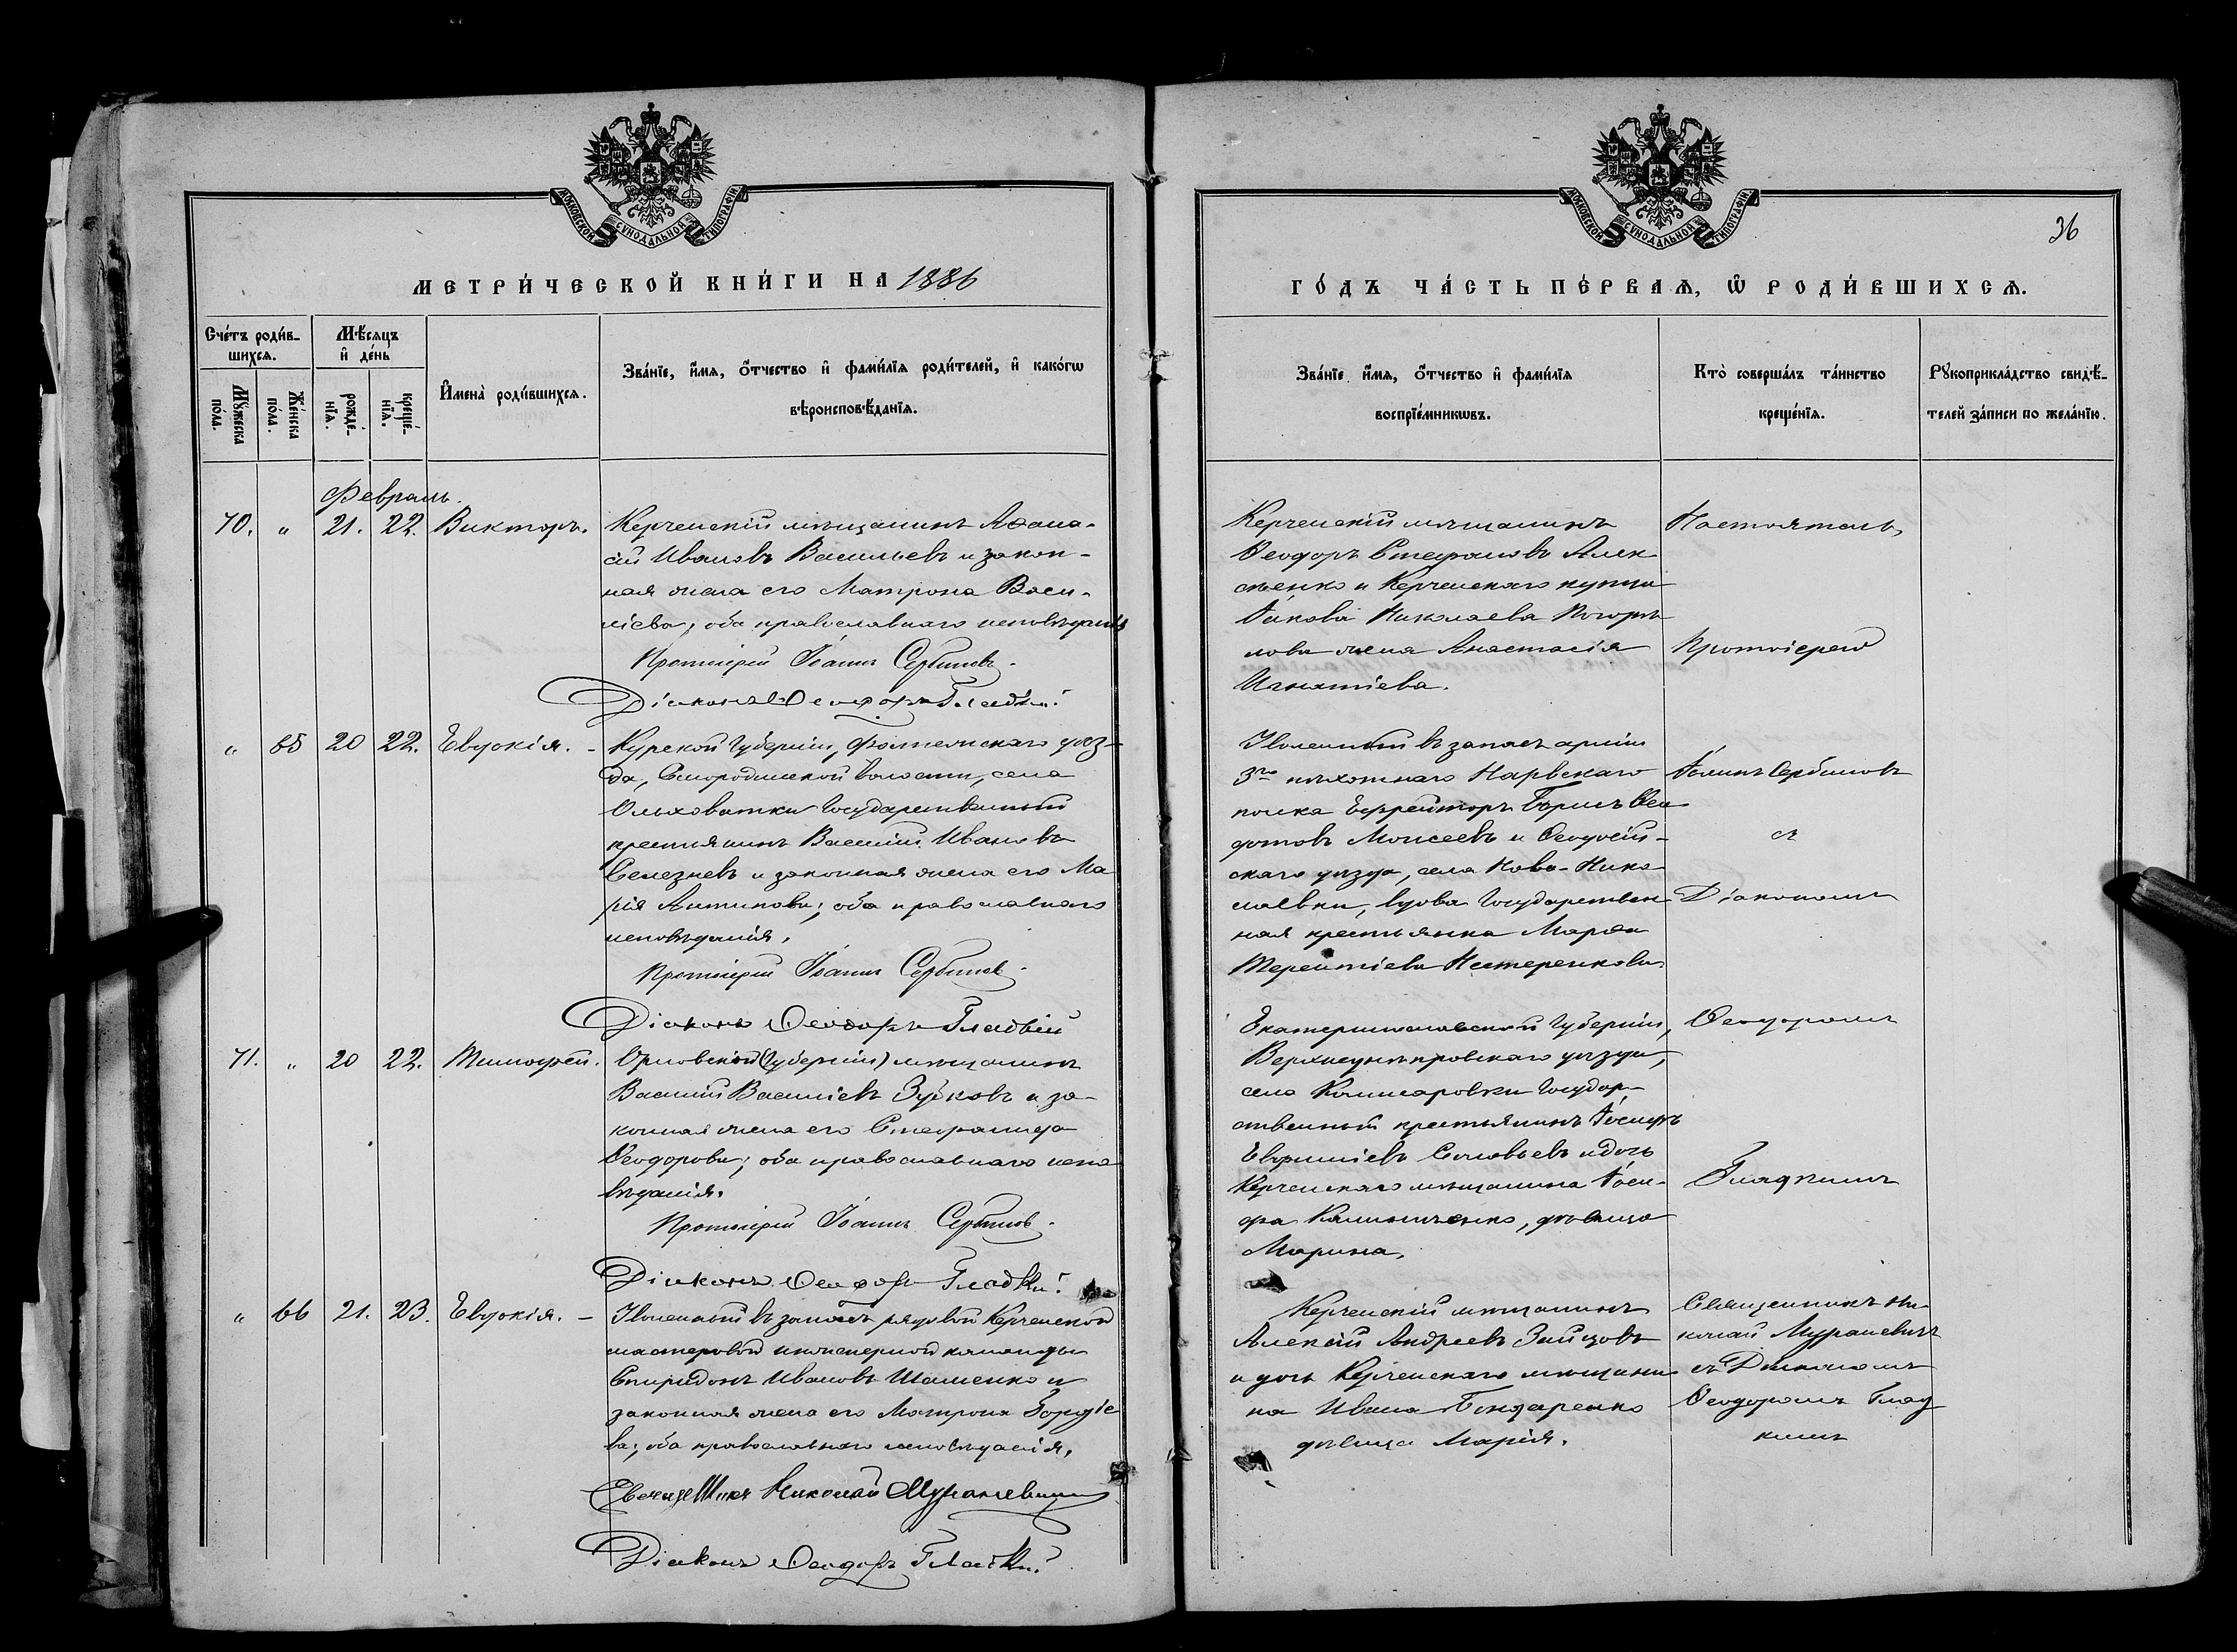 МОСКОВСКОЙ СУНОДАЛЬНОЙ ТИПОГРАФІИ
МЕТРИ́ЧЕСКОЙ КНИ́ГИ НА 1886
Сче́тъ роди́в-
шихсѧ.
Мѣ́сѧцъ
и҆ де́нь
Мꙋ́жеска
по́ла.
Же́нска
по́ла.
рожде́-
нїѧ.
креще́-
нїѧ.
И҆мена̀ роди́вшихсѧ.
Зва́нїе, и҆́мѧ, ѻ҆́тчество и҆ фами́лїѧ роди́телей, и҆ како́гѡ
вѣроисповѣ́данїѧ.
Февраль.
70. " 21. 22. Викторъ.
Керченскій мѣщанинъ Аѳана-
сій Ивановъ Васильевъ и закон-
ная жена его Матрона Васи-
лiева; оба православнаго исповѣданія
Протоіерей Іоаннъ Сербиновъ
Діаконъ Ѳеодоръ Гладкій
" 65 20 22. Евдокія. -
Курской Губерніи, Фатежскаго уѣз-
да, Смородинской волости, села
Ольховатки Государственный
крестьянинъ Василій Ивановъ
Селезневъ и законная жена его Ма
рія Антипова; оба православнаго
исповѣданія.
Протоіерей Іоаннъ Сербиновъ
Діаконъ Ѳеодоръ Гладкій
71. " 20 22. Тимофей.
Орловской (Губерніи) мѣщанинъ
Василій Василіевъ Зубковъ и за-
конная жена его Стефанида
Ѳеодорова; оба православнаго испо
вѣданія.
Протоіерей Іоаннъ Сербиновъ
Діаконъ Ѳеодоръ Гладкій
" 66 21. 23. Евдокія. -
Уволенный въ запасъ рядовой Керченской
мастеровой инженерной команды
Спиридонъ Ивановъ Шаменко и
законная жена его Матрона Гордіе
ва; оба православнаго исповѣданія.
Священникъ Николай Мураневичъ
Діаконъ Ѳеодоръ Гладкій
МОСКОВСКОЙ СУНОДАЛЬНОЙ ТИПОГРАФІИ
36
ГО́ДЪ ЧА́СТЬ ПЕ́РВАѦ, Ѽ РОДИ́ВШИХСѦ.
Зва́нїе и҆́мѧ, ѻ҆́тчество и҆ фами́лїѧ
воспрїе́мникѡвъ.
Кто̀ соверша́лъ та́инство
креще́нїѧ.
Рꙋкоприкла́дство свидѣ́-
телей за́писи по жела́нїю.
Керченскій мѣщанинъ
Ѳеодоръ Стефановъ Алек
сѣенко и Керченскаго купца
Іакова Николаева Погорѣ
лова жена Анастасія
Игнатіева.
Настоятель,
Протоіерей
Уволенный въ запасъ арміи
3го пѣхотнаго Нарвскаго
полка Ефрейторъ Борисъ Ѳео
дотовъ Моисеевъ и Ѳеодосій-
скаго уѣзда, села Ново-Нико
лаевки, вдова Государствен
ная крестьянка Марѳа
Терентіева Нестеренкова.
Іоаннъ Сербиновъ
съ
Діакономъ
Екатеринославской Губерніи,
Верхнеднѣпровскаго уѣзда,
села Комисаровки Государ-
ственный крестьянинъ Іосифъ
Евфиміевъ Соловьевъ и дочь
Керченскаго мѣщанина Іоси-
фа Калиниченко, дѣвица
Марина.
Ѳеодоромъ
Гладкимъ
Керченскій мѣщанинъ
Алексій Андреевъ Зайцовъ
и дочь Керченскаго мѣщани
на Ивана Бондаренко
дѣвица Марія.
Священникъ Ни
колай Мураневичъ
съ Діакономъ
Ѳеодоромъ Глад
кимъ